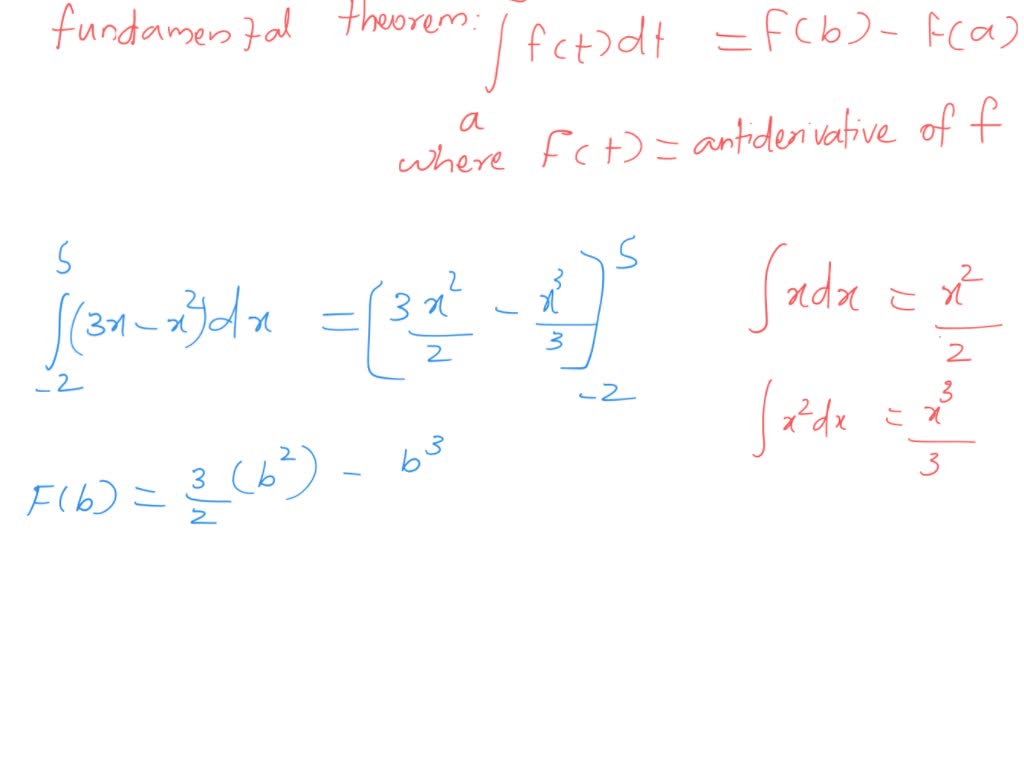 fundamental theorem: ∫ f(t)dt = F(b) - F(a)
a
where F(t) = antiderivative of f
5
∫(3x - x²)dx = [3x²/2 - x³/3]
-2
5
-2
∫xdx = x²/2
∫x²dx = x³/3
F(b) = 3/2 (b²) - b³